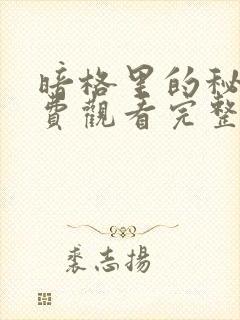 暗格里的秘
費觀看完整
裘志揚